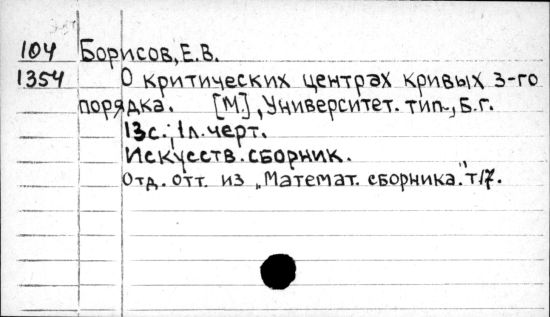 104 Борисов, Е.В.
1354 О критических центрах кривых 3-го
порядка. [М.], Университет. тип., Б.г.
13с.; 1л. черт.
Искусств. сборник.
Отд. отт. из „Математ. сборника." т.17.